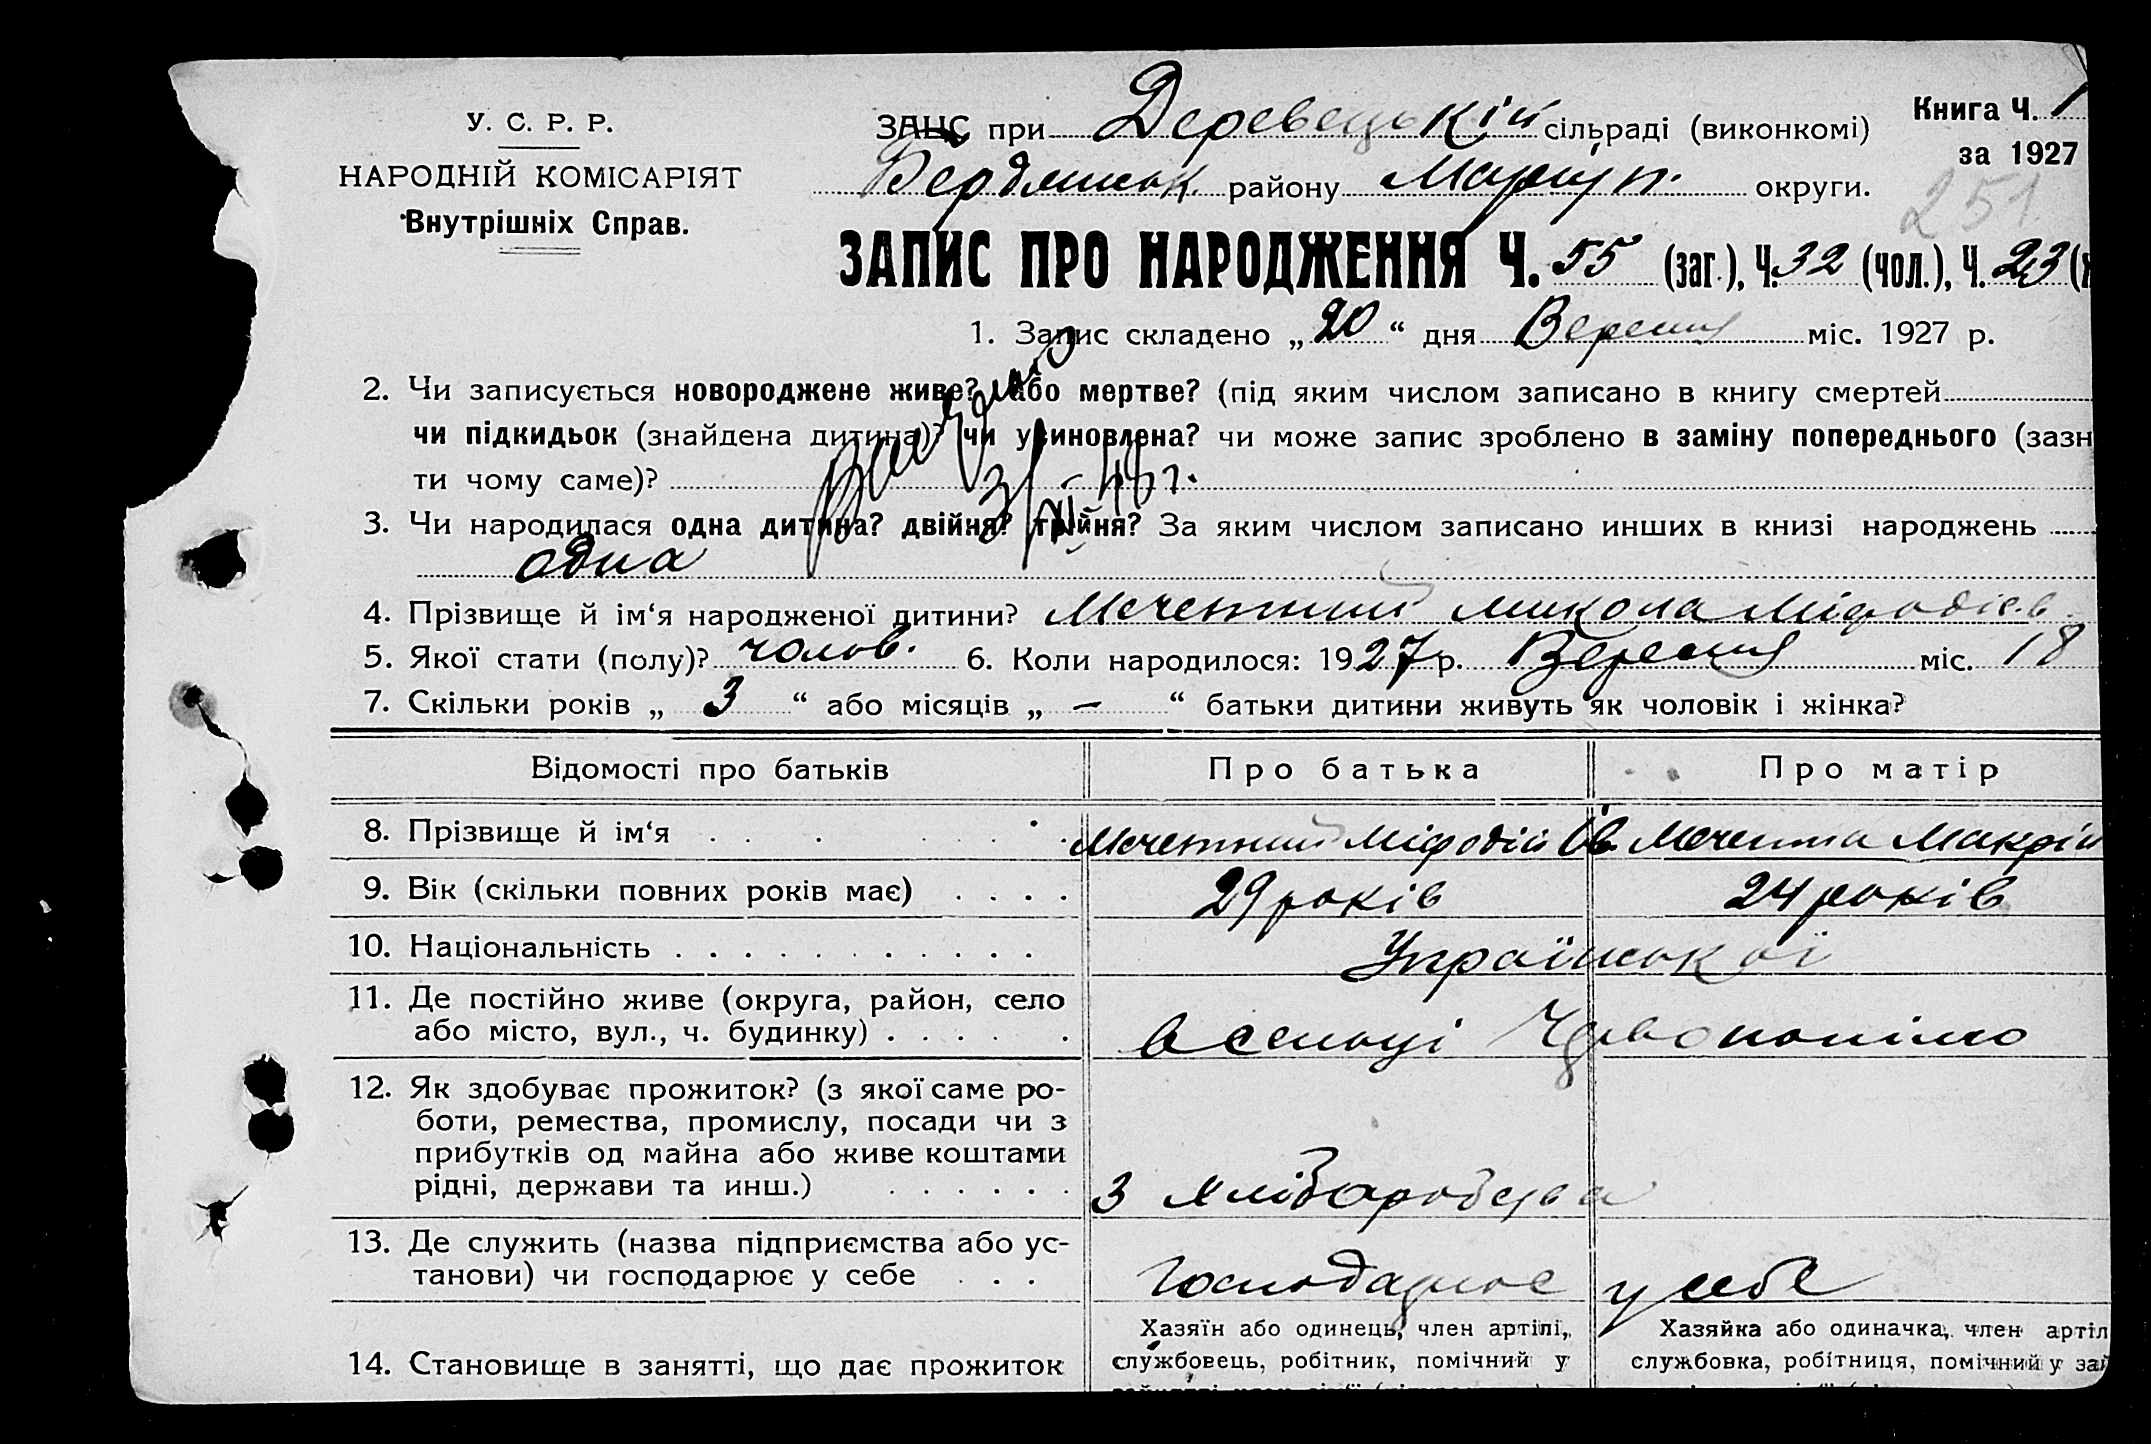 У. С. Р. Р.
НАРОДНІЙ КОМІСАРІЯТ
Внутрішніх Справ.
ЗАЦС при Деревецькій сільраді (виконкомі)
Книга Ч. 1
за 1927
Бердянськ. району Маріуп. округи.
251
ЗАПИС ПРО НАРОДЖЕННЯ Ч. 55 (заг.), Ч. 32 (чол.), Ч. 23 (
1. Запис складено „ 20 “ дня Вересня міс. 1927 р.
2. Чи записується новороджене живе? або мертве? (під яким числом записано в книгу смертей
чи підкидьок (знайдена дитина)? чи усиновлена? чи може запис зроблено в заміну попереднього (зазн
ти чому саме)?
3/XII-48 г.
3. Чи народилася одна дитина? двійня? трійня? За яким числом записано инших в книзі народжень
одна
4. Прізвище й ім‘я народженої дитини? Мечетний Микола Міфодієв
5. Якої стати (полу)? чолов. 6. Коли народилося: 1927 р. Вересня міс. 18
7. Скільки років „ 3 “ або місяців „ — “ батьки дитини живуть як чоловік і жінка?
Відомості про батьків Про батька Про матір
8. Прізвище й ім‘я . . . . . Мечетний Міфодій Ів. Мечетна Макрій
9. Вік (скільки повних років має) . . . . 29 років 24 років
10. Національність . . . . . . . . . . . Української
11. Де постійно живе (округа, район, село
або місто, вул., ч. будинку) . . . . . . в селищі
12. Як здобуває прожиток? (з якої саме ро-
боти, ремества, промислу, посади чи з
прибутків од майна або живе коштами
рідні, держави та инш.) . . . . . . З хліборобства
13. Де служить (назва підприємства або ус-
танови) чи господарює у себе . . . Господарює у себе
14. Становище в занятті, що дає прожиток
Хазяїн або одинець, член артілі,
службовець, робітник, помічний у
Хазяйка або одиначка, член артіл
службовка, робітниця, помічний у зай